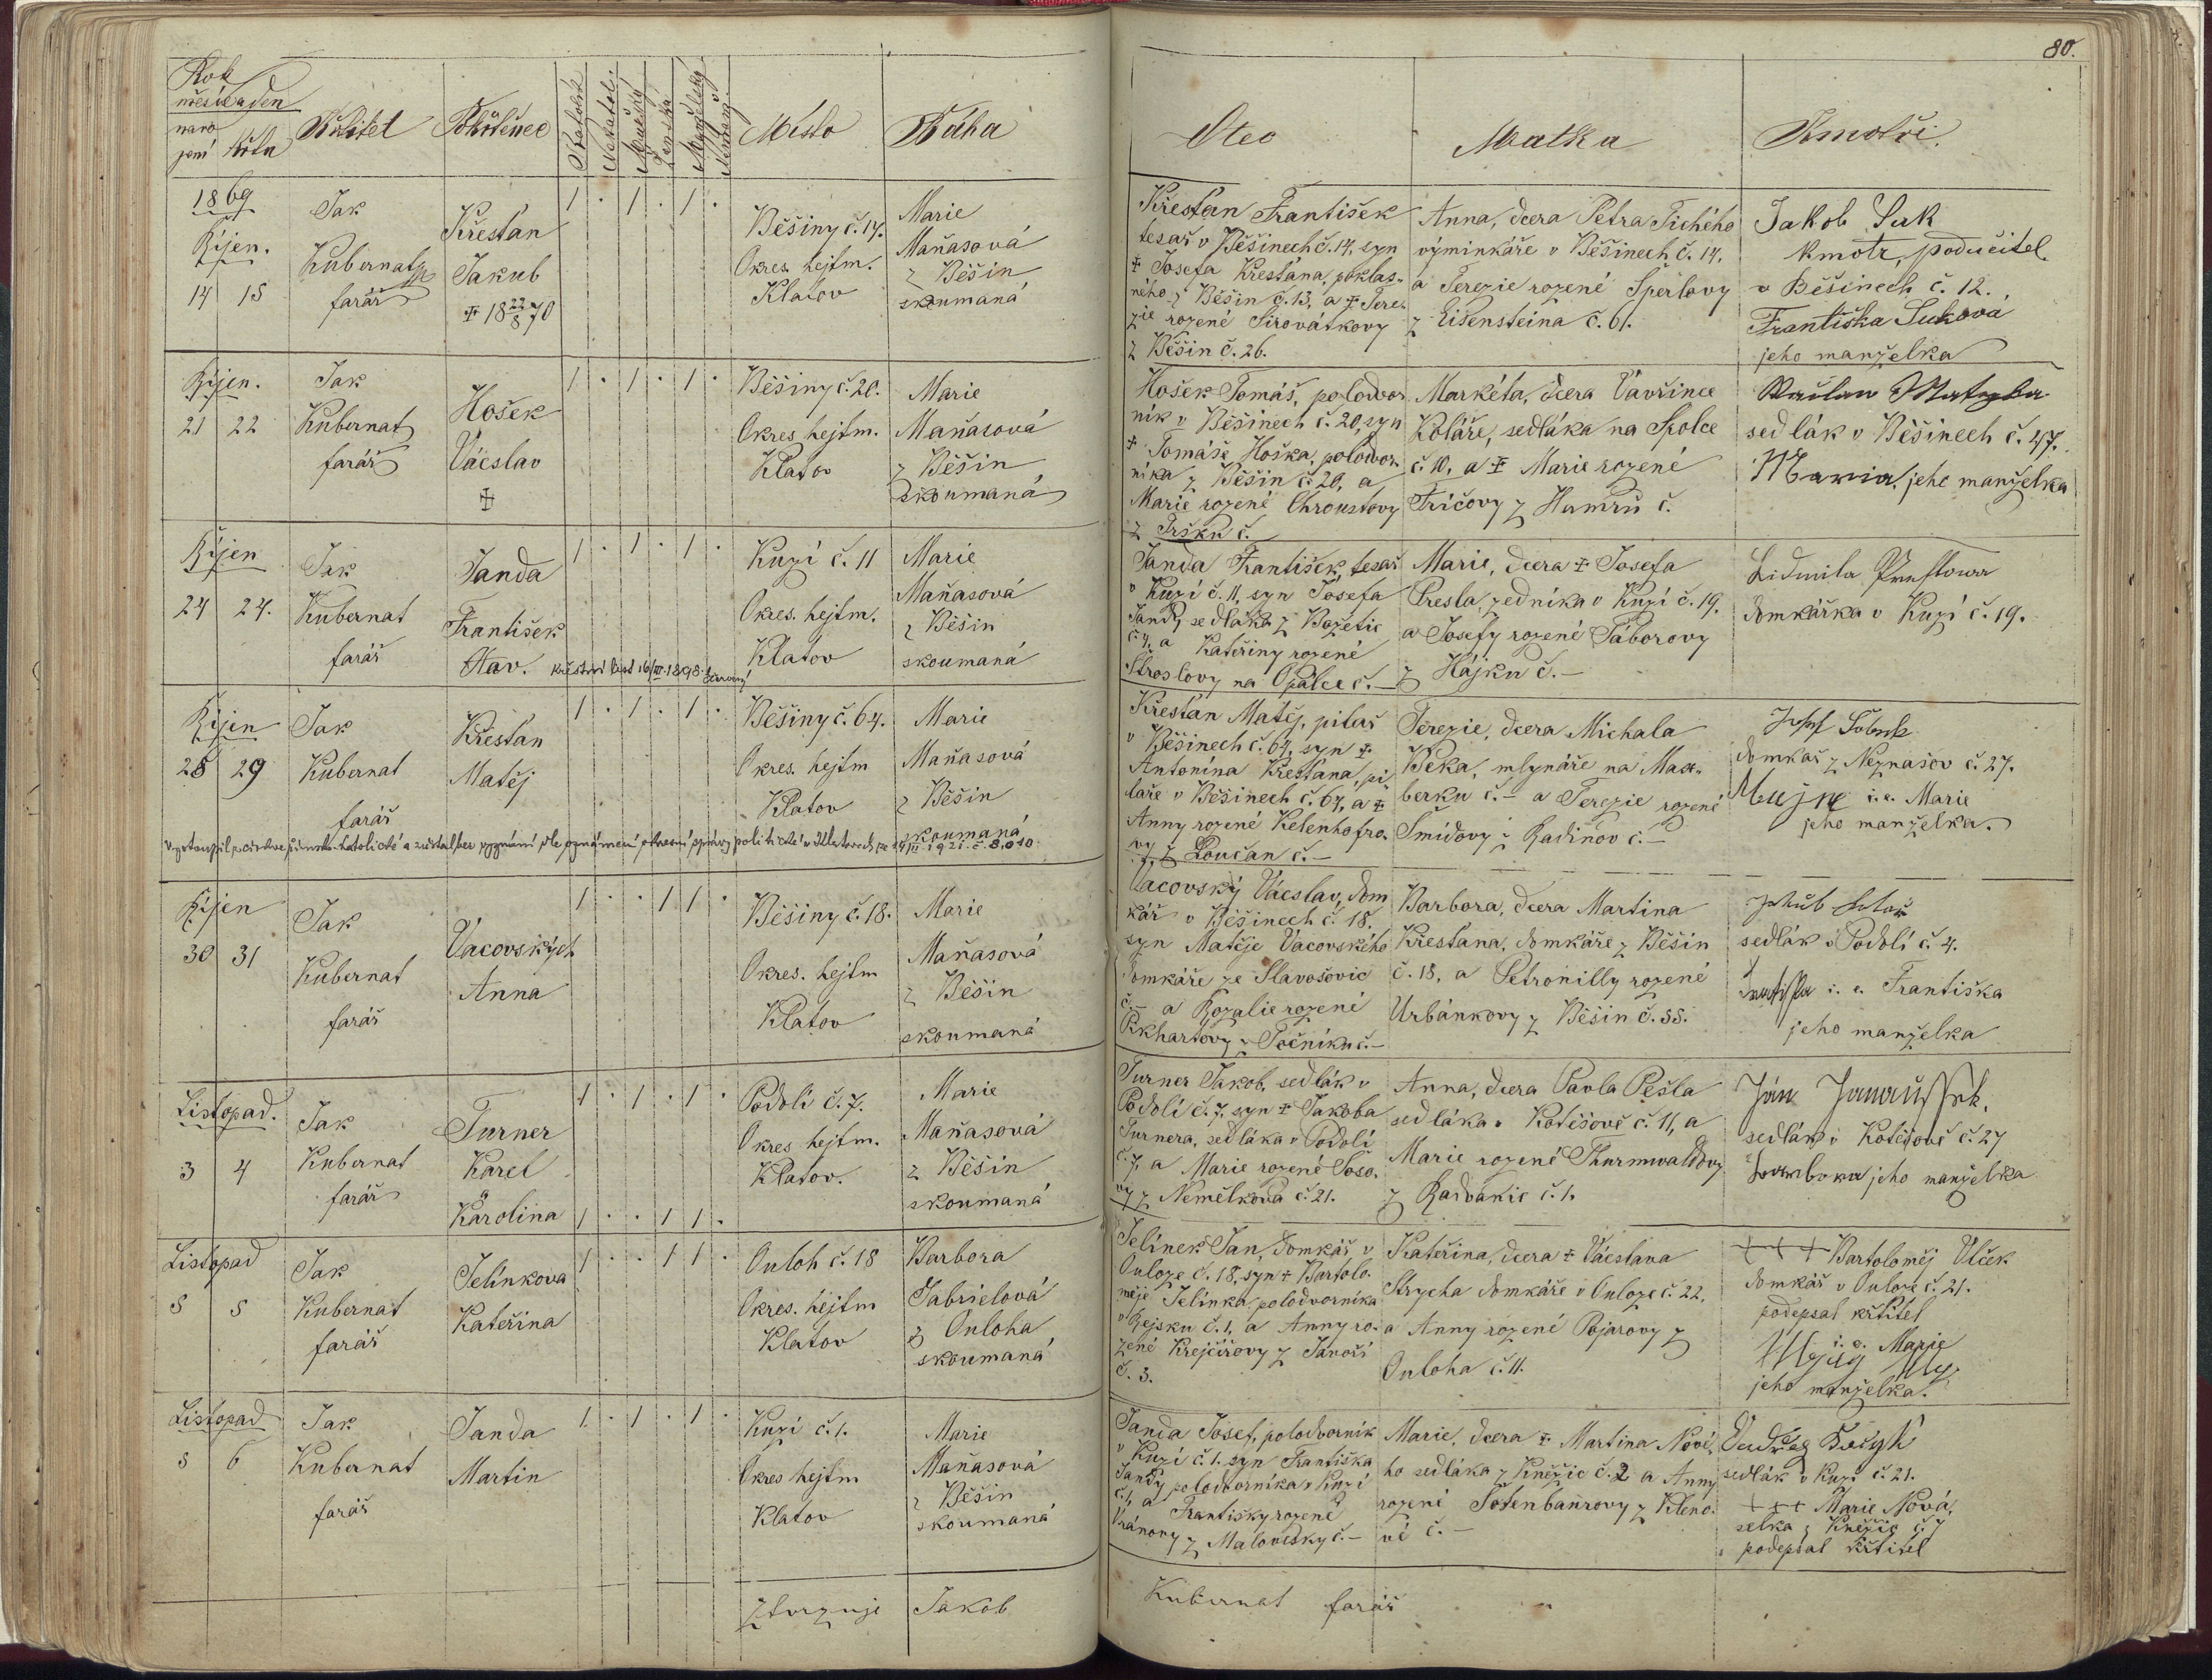 80.
Rok
měsíc a den
naro
zení křtu
Křtitel
Pokřtěnec
Katolík
Nekatol.
Mužský
Ženská
Manželský
Nemanž.
Místo
Bába
Otec
Matka
Kmotři.
1869
Říjen.
14 15
Jak
Kubernat
farář
Křesťan
Jakub
✝ 18 22/8 70
1 . 1 . 1 .
Běšiny č. 14.
Okres. hejtm.
Klatov
Marie
Maňasová
z Běšin
skoumaná
Křesťan František
tesař v Běšinech č. 14, syn
✝ Josefa Křesťana, poklas-
ného z Běšin č. 13, a ✝ Tere-
zie rozené Sirovátkovy
z Běšin č. 26.
Anna, dcera Petra Tichého
výminkáře v Běšinech č. 14.
a Terezie rozené Šperlovy
z Eisensteina č. 61.
Jakob Suk
kmotr, podučitel
v Běšinech č. 12.
Františka Suková
jeho manželka
Říjen.
21 22
Jak
Kubernat
farář
Hošek
Václav
✝
1 . 1 . 1 .
Běšiny č. 20.
Okres hejtm.
Klatov
Marie
Maňasová
z Běšin
skoumaná
Hošek Tomáš, polodvor
ník v Běšinech č. 20, syn
✝ Tomáše Hoška, polodvor-
níka z Běšin č. 20, a
Marie rozené Chroustovy
z Pršku č.
Markéta, dcera Vavřince
Koláře, sedláka na Spolce
č. 10, a ✝ Marie rozené
Fričovy z Hamrů č.
sedlák v Běšinech č. 47.
Maria, jeho manželka
Říjen
24 24.
Jak
Kubernat
farář
Janda
František
Hav. křestní list 16/III. 1898.
1 . 1 . 1 .
Kuzí č. 11
Okres. hejtm.
Klatov
Marie
Maňasová
z Běšin
skoumaná
Janda František, tesař
v Kuzí č. 11, syn Josefa
Jandy, sedláka z Bozetic
č. 4, a Kateřiny rozené
Stroslovy na Opálce č. —
Marie, dcera ✝ Josefa
Presla, zedníka v Kuzí č. 19.
a Josefy rozené Táborovy
z Hájku č. —
Lidmila
domkářka v Kuzí č. 19.
Říjen
28 29
Jak
Kubernat
farář
Křesťan
Matěj
1 . 1 . 1 .
Běšiny č. 64.
Okres. hejtm
Klatov
Marie
Maňasová
z Běšin
skoumaná
Vystoupil z církve římsko-katolické a zůstal bez vyznání, dle oznámení okresní správy politické v Klatovech ze 14/III. 1921. č. 8,010
Křesťan Matěj, pilař
v Běšinech č. 64, syn ✝
Antonína Křesťana, pi-
laře v Běšinech č. 64, a ✝
Anny rozené Kelenhofro-
vy z Loučan č. —
Terezie, dcera Michala
Beka, mlynáře na Max-
berku č. — a Terezie rozené
Šmídovy z Radinov č. —
Josef
domkař z Neznašov č. 27.
i. e. Marie
jeho manželka.
Říjen
30 31
Jak
Kubernat
farář
Vacovských
Anna
1 . . 1 1 .
Běšiny č. 18.
Okres. hejtm
Klatov
Marie
Maňasová
z Běšin
skoumaná
Vacovský Václav, dom
kář v Běšinech č. 18.
syn Matěje Vacovského
domkáře ze Slavošovic
č. — a Rozalie rozené
Ekhartovy z Točníku č. —
Barbora, dcera Martina
Křesťana, domkáře z Běšin
č. 18, a Petronilly rozené
Urbánkovy z Běšin č. 55.
Jakub
sedlák v Podolí č. 4.
i. e. Františka
jeho manželka
Listopad.
3 4
Jak
Kubernat
farář
Turner
Karel
a
Karolina
1 . 1 . 1 .
1 . . 1 1 .
Podolí č. 7.
Okres hejtm.
Klatov.
Marie
Maňasová
z Běšin
skoumaná
Turner Jakob, sedlák v
Podolí č. 7, syn ✝ Jakoba
Turnera, sedláka v Podolí
č. 7, a Marie rozené Šoso-
vy z Nemělkova č. 21.
Anna, dcera Pavla Pešla
sedláka v Kotěšově č. 11, a
Marie rozené Thurnwaldovy
z Radvanic č. 1.
Ján
sedlák v Kotěšově č. 27
Barbora jeho manželka
Listopad
5 5
Jak
Kubernat
farář
Jelínkova
Kateřina
1 . . 1 1 .
Ouloh č. 18
Okres. hejtm
Klatov
Barbora
Gabrielová
z Ouloha
skoumaná
Jelínek Jan, domkář v
Ouloze č. 18, syn ✝ Bartolo-
měje Jelínka, polodvorníka
v Rejsku č. 1, a Anny ro-
zené Krejčířovy z Janoší
č. 3.
Kateřina, dcera ✝ Václava
Strycha domkáře v Ouloze č. 22.
a Anny rozené Pojarovy z
Ouloha č. 11.
+++ Bartoloměj Vlček
domkář v Ouloze č. 21.
podepsal křtitel
i. e. Marie
jeho manželka.
Listopad
5 6
Jak
Kubernat
farář
Janda
Martin
1 . 1 . 1 .
Kuzí č. 1.
Okres hejtm
Klatov
Marie
Maňasová
z Běšin
skoumaná
Janda Josef, polodvorník
v Kuzí č. 1. syn Františka
Jandy, polodvorníka v Kuzí
č. 1, a Františky rozené
Vránovy z Malovesky č. —
Marie, dcera ✝ Martina Nové-
ho sedláka z Kněžic č. 2 a Anny
rozené Šotenbaurovy z Kleno-
vé č. —
sedlák v Kuzí č. 21.
+++ Marie Nová,
selka z Kněžic č. 7
podepsal křtitel
Ztvrzuje Jakob Kubernat farář